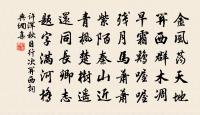 金風蕩天地
關西群木凋
早霜雞喔喔
殘月馬蕭蕭
紫陌秦山近
青楓楚樹遙
還同長卿志
題字滿河橋
許渾秋日行次關西詞
典網集